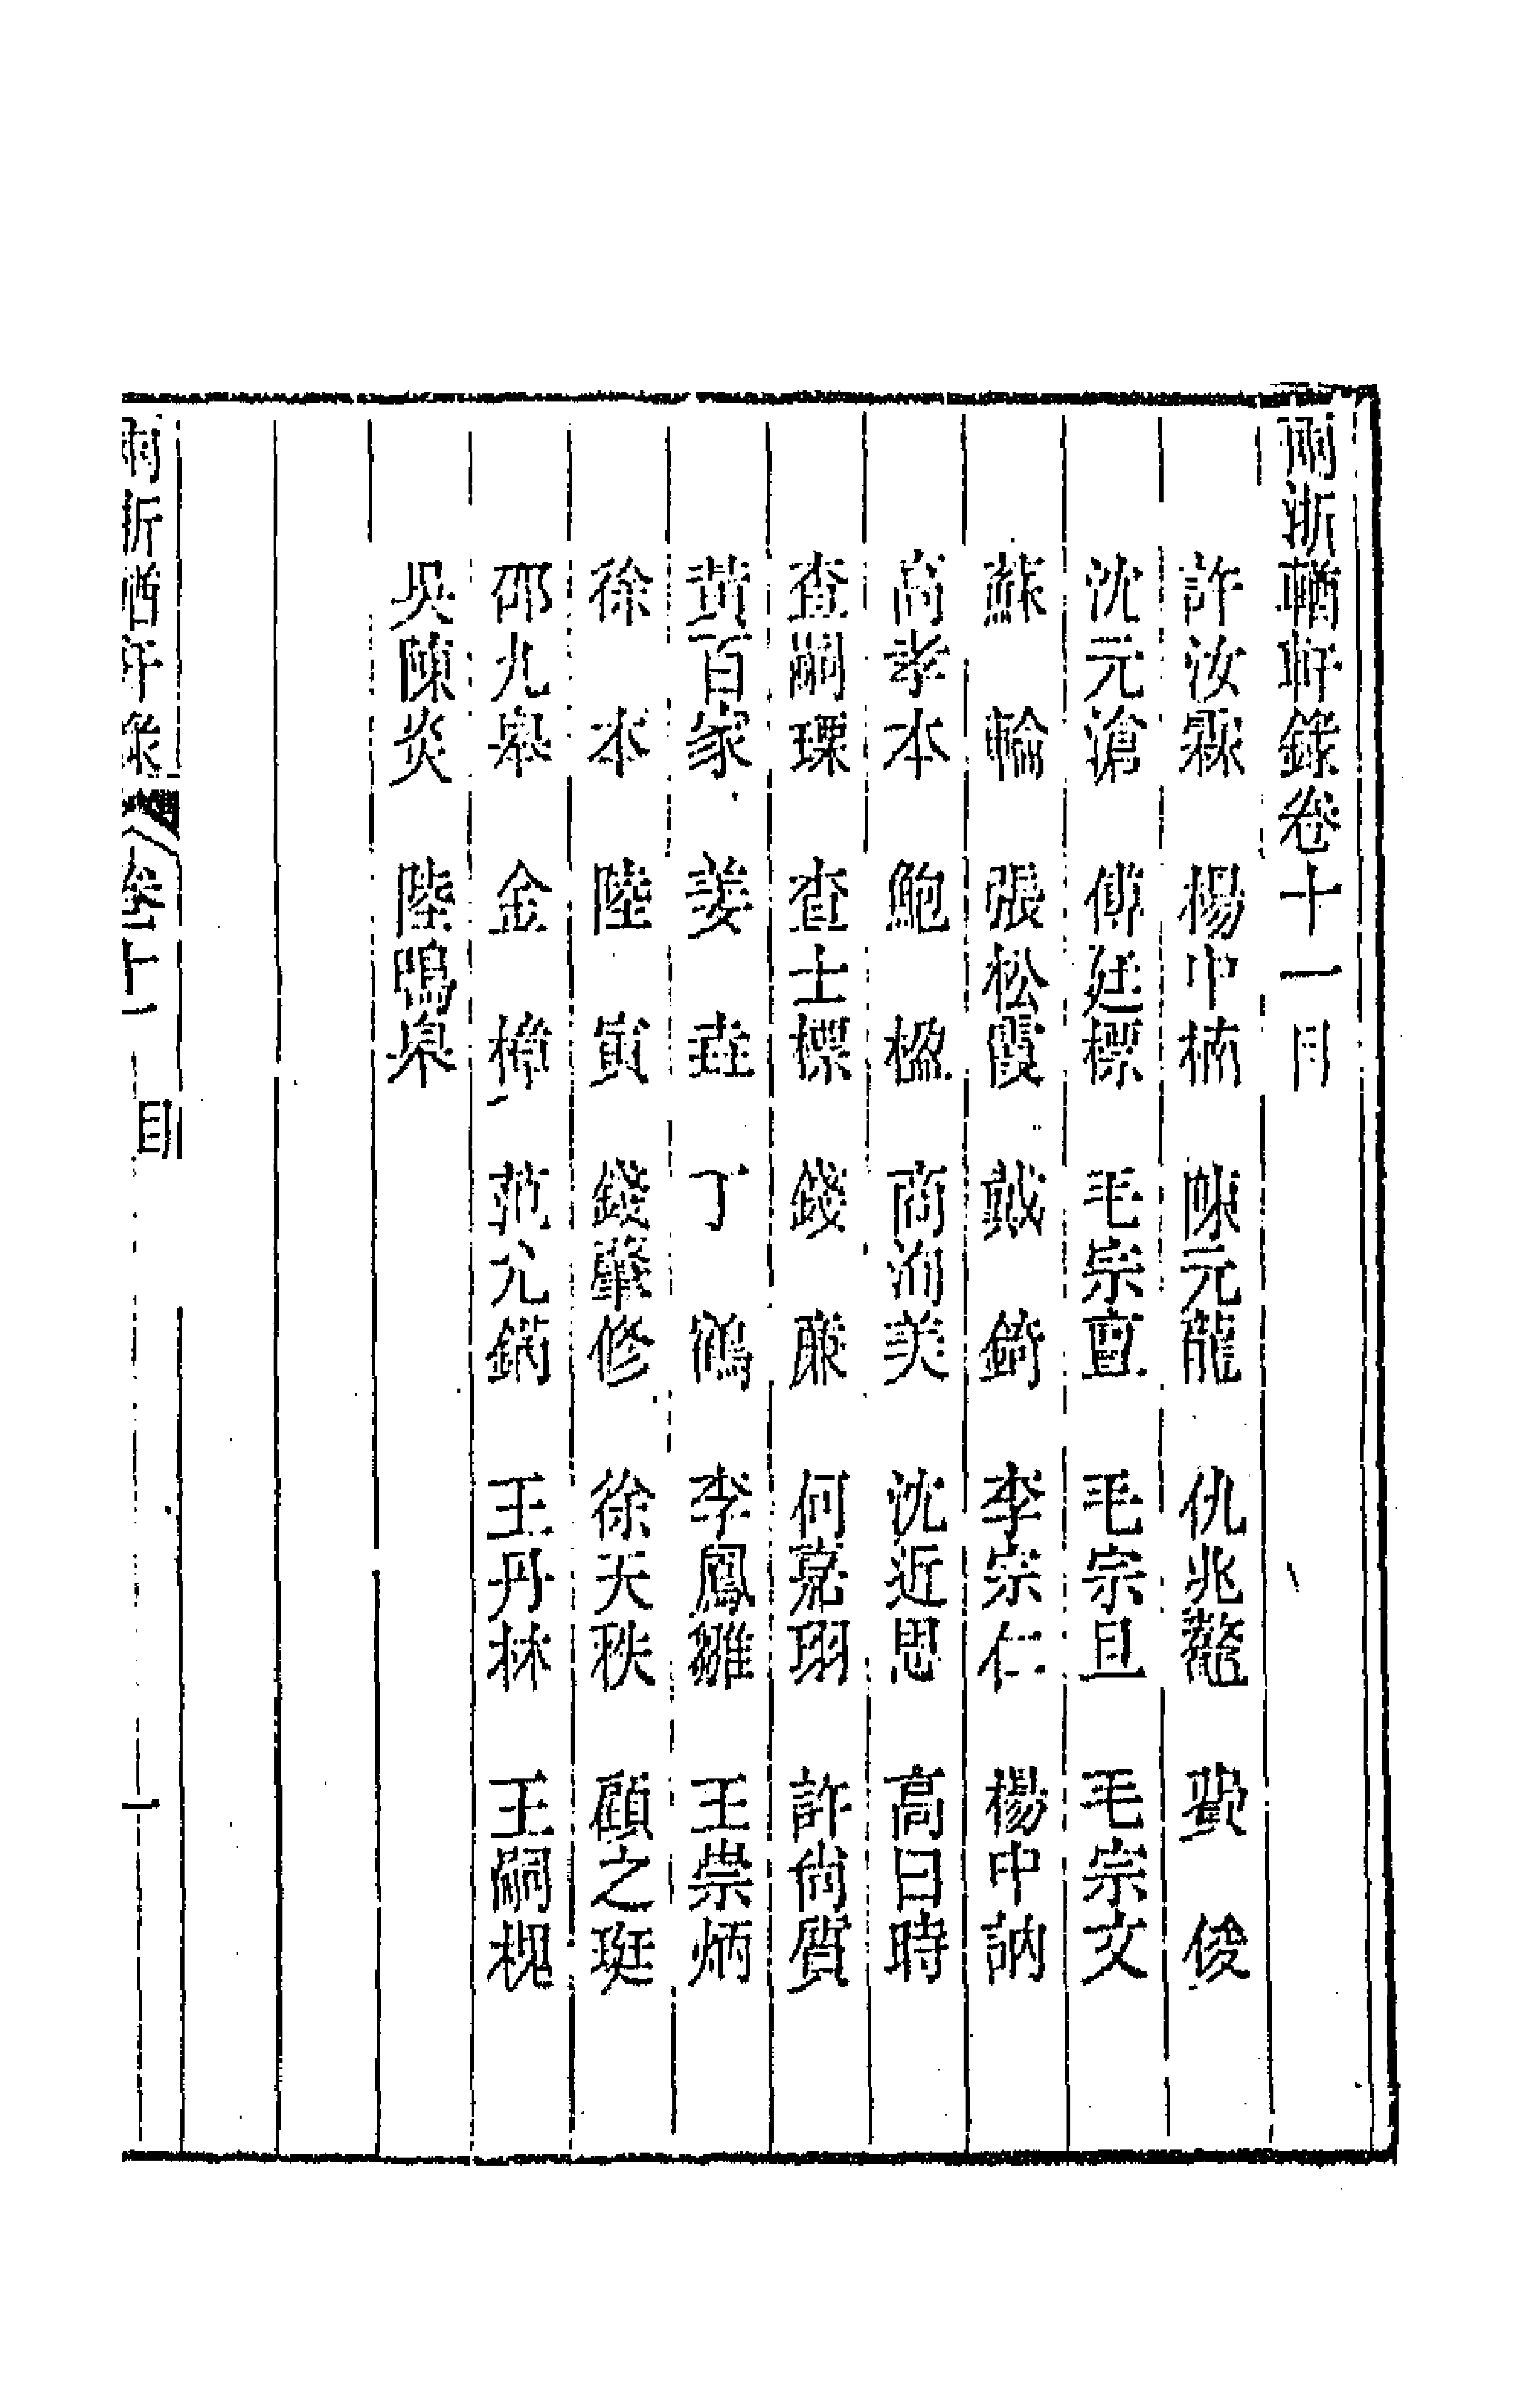 兩浙輶軒錄卷十一目
許汝霖 楊中楠 陳元龍 仇兆鼇 費俊
沈元滄 傅廷標 毛宗亶 毛宗旦 毛宗文
蘇輪 張松霞 戴錡 李宗仁 楊中訥
高孝本 鮑楹 商洵美 沈近思 高曰時
查嗣瑮 查士標 錢廉 何嘉珝 許尙質
黃百家 姜垚 丁鶴 李鳳雛 王崇炳
徐本 陸寅 錢肇修 徐天秩 顧之珽
邵九皋 金樟 范允鋿 王丹林 王嗣槐
吳陳炎 陸鳴皋
兩浙輶軒錄 卷十一 目 一